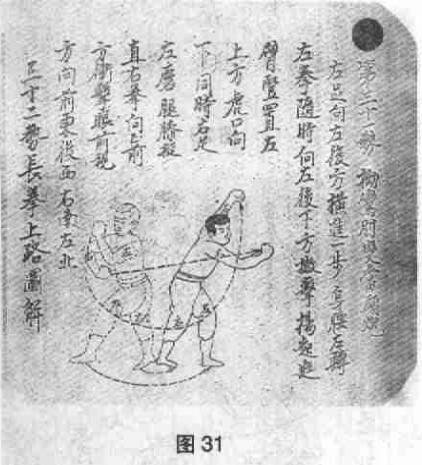 第三十勢
左足向左後方橫進一步身腰左轉
左拳隨時向左後下方擊揚起
臂豎置左
上方虎口向
下同時右足
左磨腿膝挺
直右拳向上前
方衝擊眼前視
方向前東後西右南左北
三十二勢長拳上路圖解
图 31